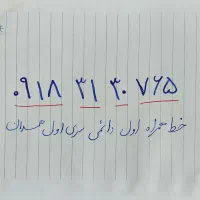 ۰۹۱۸ ۳۱ ۳۰ ۷۶۵
خط همراه اول دائمی سری اول همدان